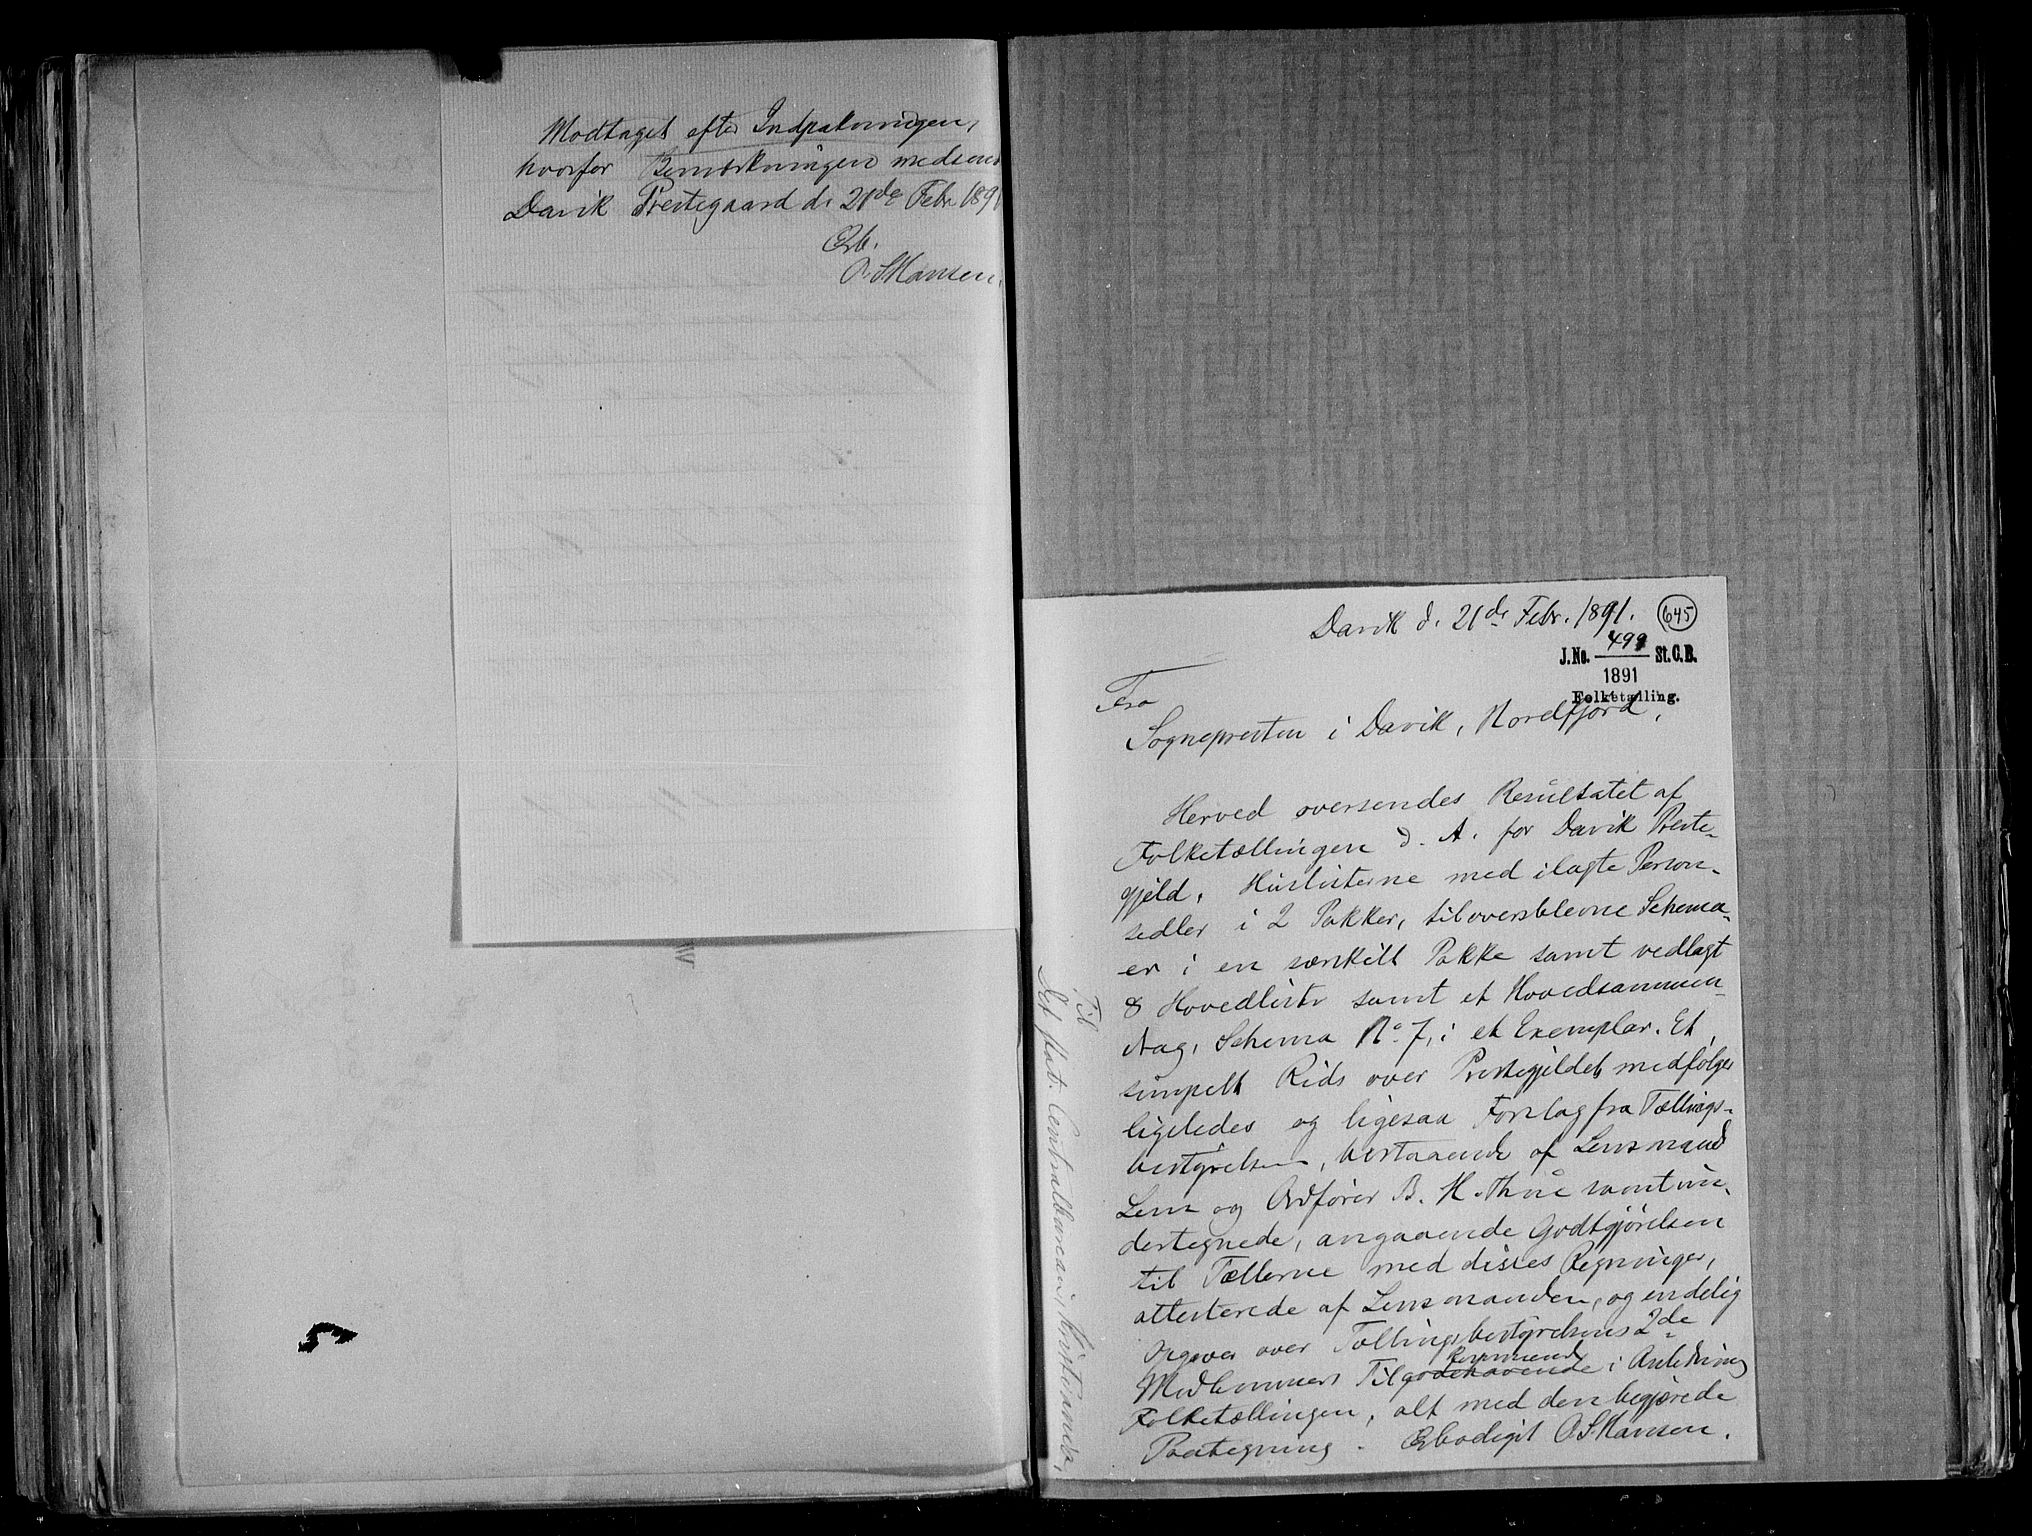 Modtaget efter Indpakningen,
hvorfor Bemærkningen medsend
Davik Prestegaard d. 21de Febr 1891
Ærb.
O. S Hansen.
Davik d. 21de Febr. 1891.
645
J.No. 499 St.C.B.
1891
Folketælling.
Fra
Sognepresten i Davik, Nordfjord,
Herved oversendes Resultatet af
Folketællingen d. A. for Davik Preste-
gjeld. Huslisterne med ilagte Person-
sedler i 2 Pakker, tiloversblevne Schema-
er i en særskilt Pakke samt vedlagt
8 Hovedlister samt et Hovedsammen-
drag, Schema No. 7, i et Exemplar. Et
simpelt Rids over Prestegjeldet medfølger
ligeledes og ligesaa Forslag fra Tællings-
bestyrelsen, bestaaende af Lensmand
Lem og Ordfører B. H. Thue samt un-
dertegnede, angaaende Godtgjørelsen
til Tællerne med disses Regninger,
attesterede af Lensmanden, og endelig
Opgaver over Tællingsbestyrelsens 2de
Medlemmers Tilgodehavende i Anledning
Folketællingen, alt med den begjærede
Paategning. Ærbødigst O. S. Hansen.
Til
Det stat. Centralbureau, Kristiania,